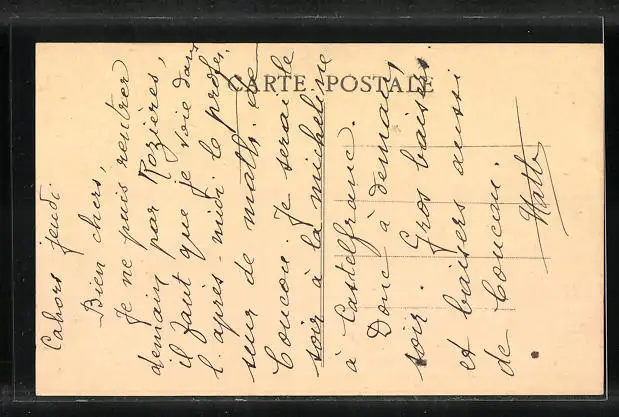 CARTE POSTALE
Cahors jeudi.
Bien chers,
Je ne puis rentrer
demain par Rozières,
il faut que je voie dans
l'après-midi le profes
seur de maths. de
Coucou. Je serai le
soir à la micheline
à Castelfranc.
Donc à demain
soir. Gros baisers
et baisers aussi
de Coucou.